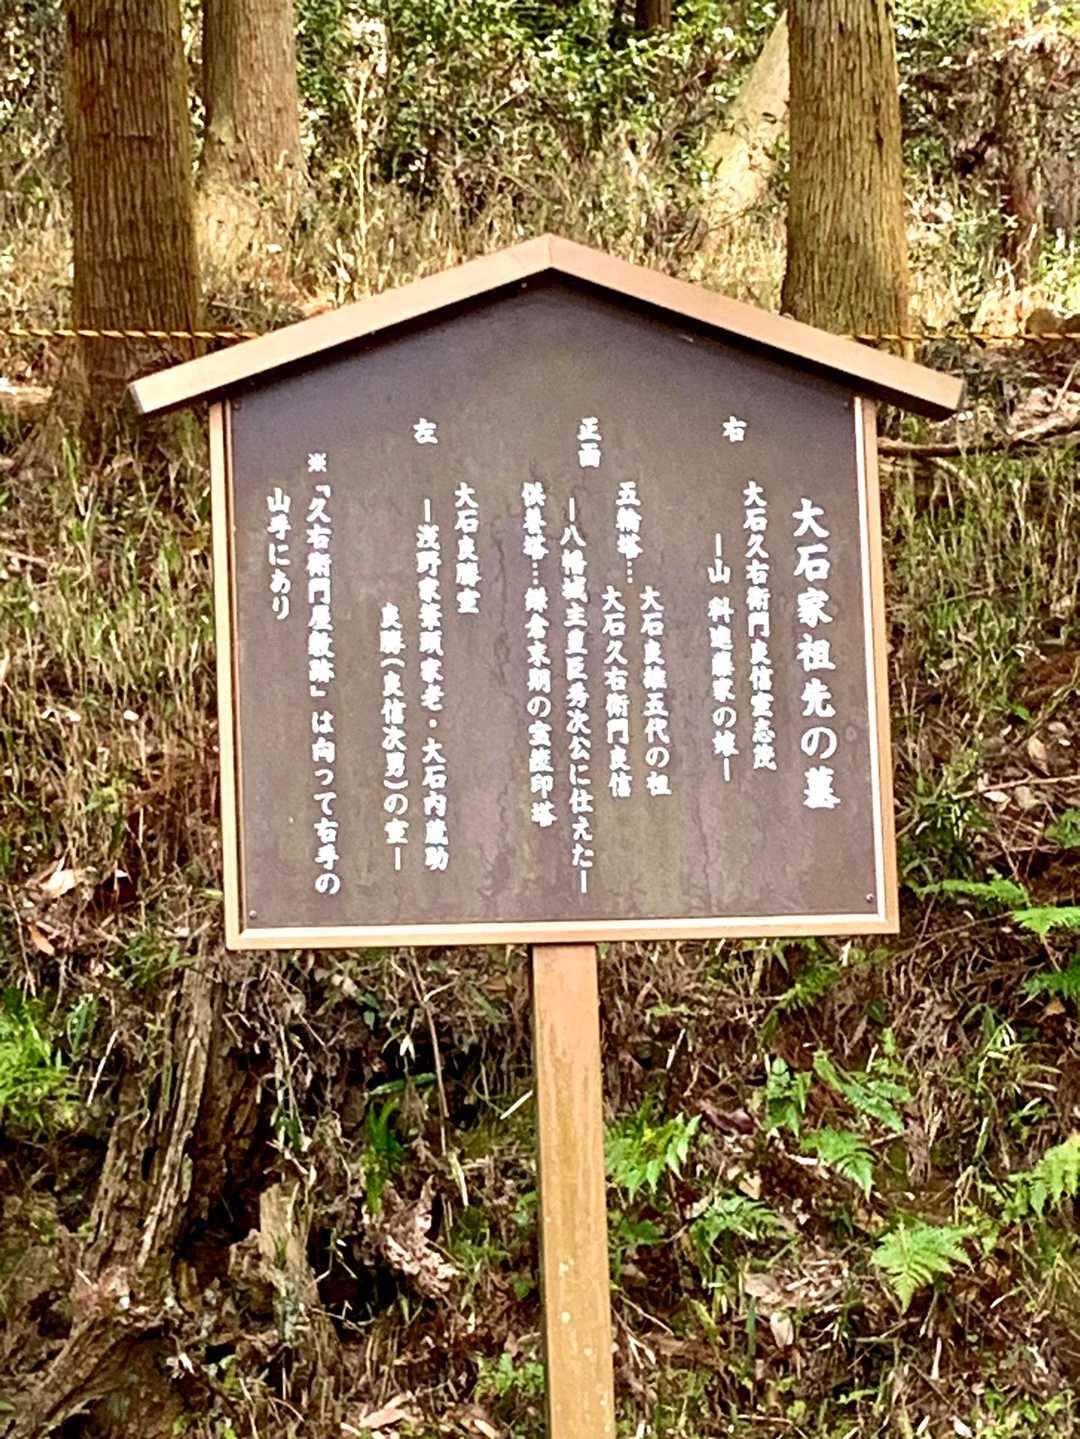 大石家祖先の墓
右
大石久右衛門良信室志茂
ー山科進藤家の娘ー
正面
大石良雄五代の祖
五輪塔…
大石久右衛門良信
ー八幡城主豊臣秀次公に仕えたー
供養塔…鎌倉末期の宝篋印塔
左
大石良勝室
ー浅野家筆頭家老・大石内蔵助
良勝(良信次男)の室ー
※「久右衛門屋敷跡」は向って右手の
山手にあり